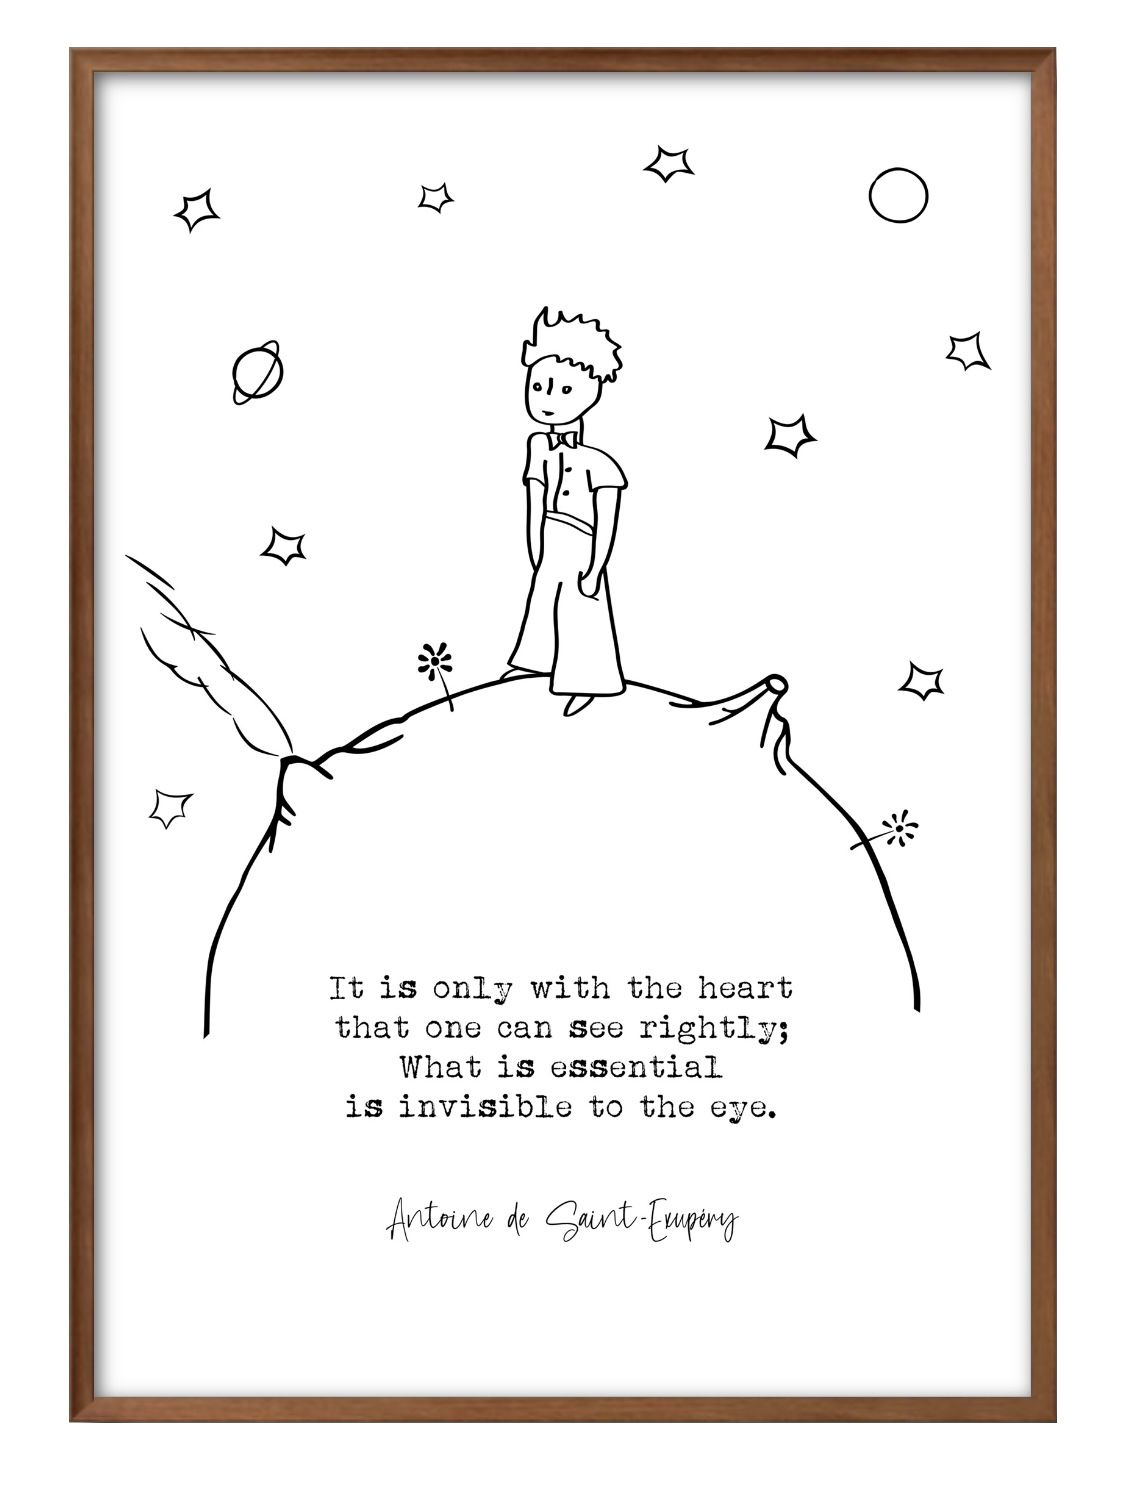 It is only with the heart
that one can see rightly;
What is essential
is invisible to the eye.
Antoine de Saint-Exupéry